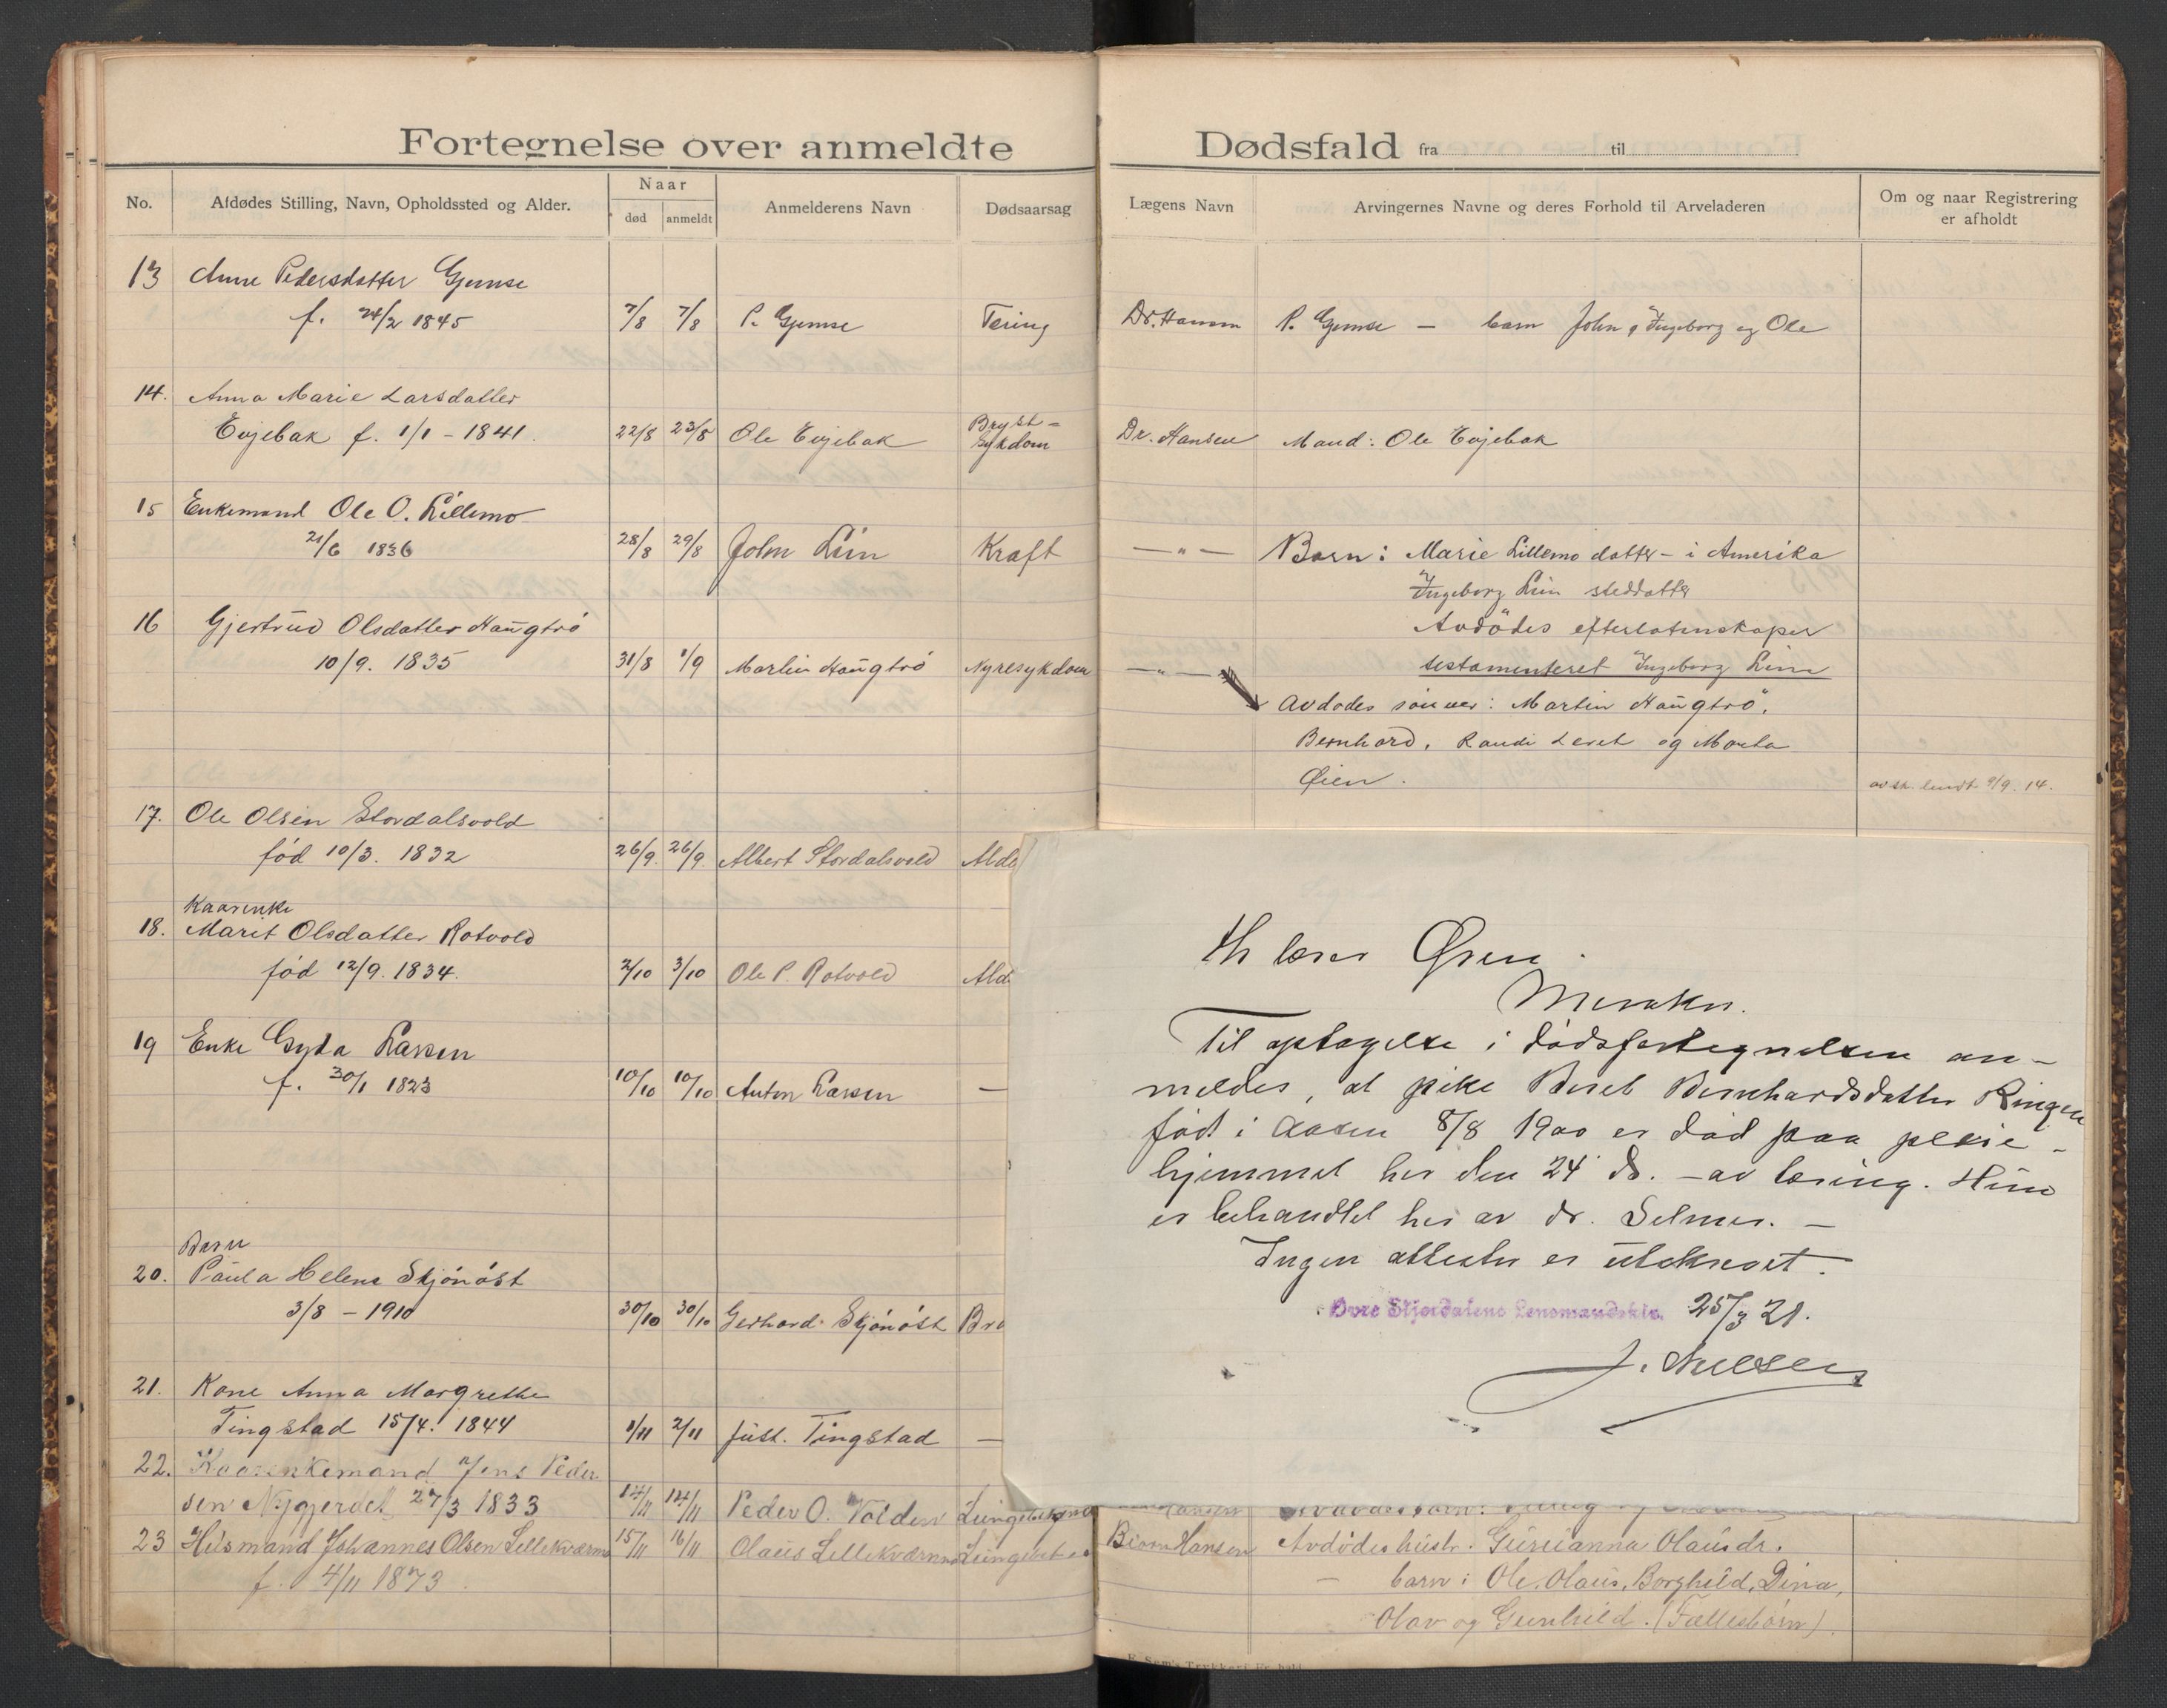 Fortegnelse over anmeldte Dødsfald fra til
No. Afdødes Stilling, Navn, Opholdssted og Alder. Naar død anmeldt Anmelderens Navn Dødsaarsag Lægens Navn Arvingernes Navne og deres Forhold til Arveladeren Om og naar Registrering er afholdt
13 Anne Pedersdatter Gjemse
f. 24/2 1845 7/8 7/8 P. Gjemse Tering Dr. Hansen P. Gjemse — barn John, Ingeborg og Ole
14. Anna Marie Larsdatter
Evjebak f. 1/1 - 1841. 22/8 23/8 Ole Evjebak Bryst=
sykdom Dr. Hansen Mand: Ole Evjebak
15 Enkemand Ole O. Lillemo
21/6 1836 28/8 29/8 John Lien Kræft — " — Barn: Marie Lillemo datter - i Amerika
Ingeborg Lien steddatter
Avdödes efterlatenskaper
testamenteret Ingeborg Lien
16 Gjertrud Olsdatter Haugtrö
10/9. 1835 31/8 1/9 Martin Haugtrö Nyresykdom — " —
Avdödes sönner: Martin Haugtrö,
Bernhard, Randi og Marta
Øien. avsk. lendt 9/9. 14.
17. Ole Olsen Stordalsvold
föd 10/3. 1832 26/9. 26/9. Albert Stordalsvold Alde
Kaarenke
18. Marit Olsdatter Rotvold
föd 12/9. 1834. 2/10 3/10 Ole P. Rotvold Ald
19 Enke Gyda Larsen
f. 30/1 1823 10/10 10/10 Anton Larsen —
Barn
20. Paula Helene Skjönöst
3/8 - 1910 30/10 30/10 Gerhard Skjönöst Bro
21. Kone Anna Margrethe
Tingstad 15/4. 1844 1/11 2/11 Just. Tingstad —
22. Kaarenkemand Jens Peder
sen Nygjerdet 27/3 1833 14/11 14/11 Peder O. Volden
23 Husmand Johannes Olsen Lillekværnmo 15/11 16/11 Olaus Lillekværnmo Hansen Avdödes hustr. Gurianna Olausdr.
f. 4/11 1873. — barn: Ole, Olaus, Borghild, Dina,
Olav og Gunhild. (Fællesbörn).
Hr lærer Øren.
Meraker.
Til optagelse i dödsfortegnelsen an-
meldes, at pike Beret Bernhardsdatter Ringen
födt i Aasen 8/8 1900 er död paa pleie-
hjemmet her den 24 ds. - av tæring. Hun
er behandlet her av dr. Selmer. —
Ingen attester er utskrevet.
Øvre Stjørdalens Lensmandsktr. 25/3 21.
J. Nielsen